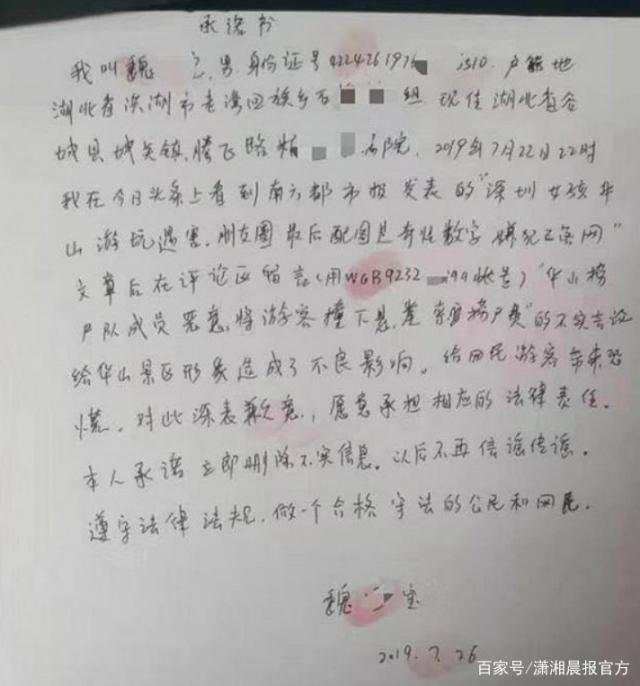 承诺书
我叫魏 男,身份证号4224261976 1510.户籍地
湖北省洪湖市老湾回族乡 组 现住湖北省谷
城县城关镇腾飞路 院,2019年7月22日22时
我在今日头条上看到南方都市报发表的"深圳女孩华
山游玩遇害,朋友圈最后配图是奇怪数字 嫌犯已落网"
文章后在评论区留言(用WGB9232 199账号)"华山
护队成员恶意将游客撞下悬崖 费"的不实言论
给华山景区形象造成了不良影响。给网民游客带来恐
慌。对此深表歉意,愿意承担相应的法律责任。
本人承诺立即删除不实信息。以后不再信谣传谣。
遵守法律法规,做一个合格守法的公民和网民。
魏 宝
2019.7.26
百家号/潇湘晨报官方